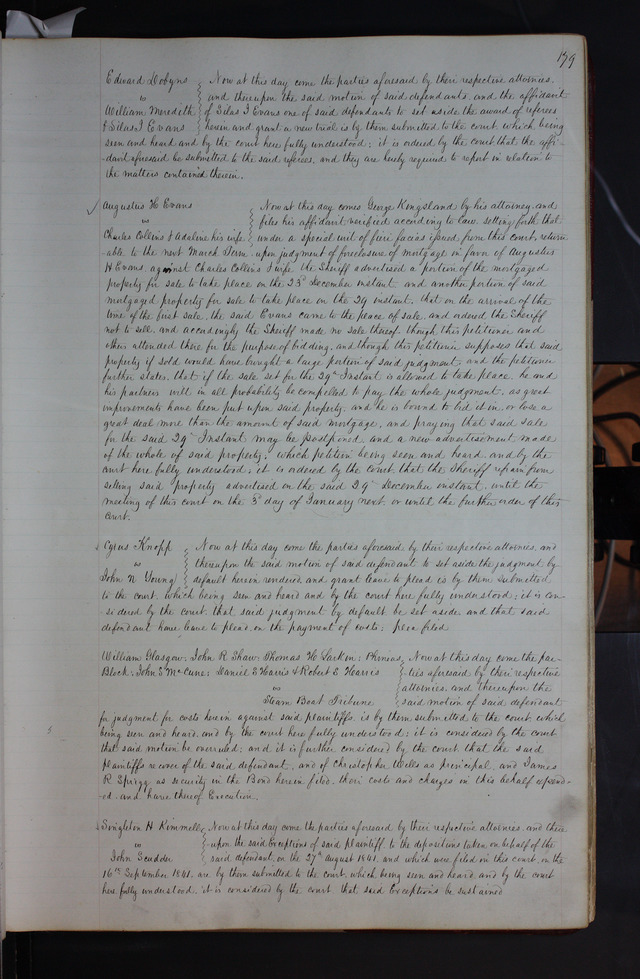 179
Edward Dobyns } Now at this day come the parties aforesaid by their respective attornies.
vs } and thereupon the said motion of said defendants, and the affidavit
William Meredith } of Silas I Evans one of said defendants to set aside the award of referees
& Silas I Evans } herein and grant a new trial is by them submitted to the court which being
seen and heard and by the court here fully understood; it is ordered by the court that the affi-
davit afresaid be submitted to the said referees, and they are hereby required to report in relation to
the matters contained therein.
Augustus H Evans } Now at this day comes George Kingsland by his attorney and
vs } files his affidavit verified according to law setting forth that
Charles Collins & Adaline his wife } under a special writ of fieri facias issued from this court, return
-able to the next March Term upon judgment of foreclosure of mortgage in favor of Augustus
H Evans against Charles Collins & wife the Sheriff advertised a portion of the mortgaged
property for sale to take place on the 23d December instant and another portion of said
mortgaged property for sale to take place on the 29 instant, that on the arrival of the
time of the first sale, the said Evans came to the place of sale, and ordered the Sheriff
not to sell, and accordingly the Sheriff made no sale thereof though this petitioner and
others attended there for the purpose of bidding, and though this petitioner supposes that said
property if sold would have brought a large portion of said judgment and the petitioner
further states, that if the sale set for the 29th Instant is allowed to take place, he and
his partners will in all probability be compelled to pay the whole judgment, as great
improvements have been put upon said property, and he is bound to bid it in or lose a
great deal more than the amount of said mortgage, and praying that said sale
for the said 29th Instant may be postponed and a new advertisement made
of the whole of said property; which petition being seen and heard and by the
court here fully understood, it is ordered by the court that the Sheriff refrain from
selling said property advertised on the said 29th December instant, until the
meeting of this court on the 3d day of January next, or until the further order of this
Court.
Cyrus Knapp } Now at this day come the parties aforesaid by their respective attornies, and
vs } thereupon the said motion of said defendant to set aside the judgment by
John N Young } default herein rendered, and grant leave to plead is by them submitted
to the court, which being seen and heard and by the court here fully understood; it is con-
sidered by the court that said judgment by default be set aside and that said
defendant have leave to plead, on the payment of costs; plea filed
William Glasgow; John R Shaw; Thomas H Larkin; Phineas } Now at this day come the par-
Block; John S McCune; Daniel E Harris & Robert E Harris } ties aforesaid by their respective
vs } attornies, and thereupon the
Steam Boat Tribune } said motion of said defendant
for judgment for costs herein against said plaintiffs, is by them submitted to the court, which
being seen and heard, and by the court here fully understood; it is considered by the court
that said motion be overruled; and it is further considered by the court that the said
plaintiffs recover of the said defendant, and of Christopher Wells as principal, and James
R Sprigg as security in the Bond herein filed, their costs and charges in this behalf expend-
-ed. and have thereof Execution.
Singleton H Kimmell } Now at this day come the parties aforesaid by their respective attornies, and there
vs } upon the said exceptions of said plaintiff to the depositions taken on behalf of the
John Scudder } said defendant, on the 27th August 1841, and which were filed in this court, on the
16th September 1841, are by them submitted to the court, which being seen and heard, and by the court
here fully understood, it is considered by the court that said Exceptions be sustained